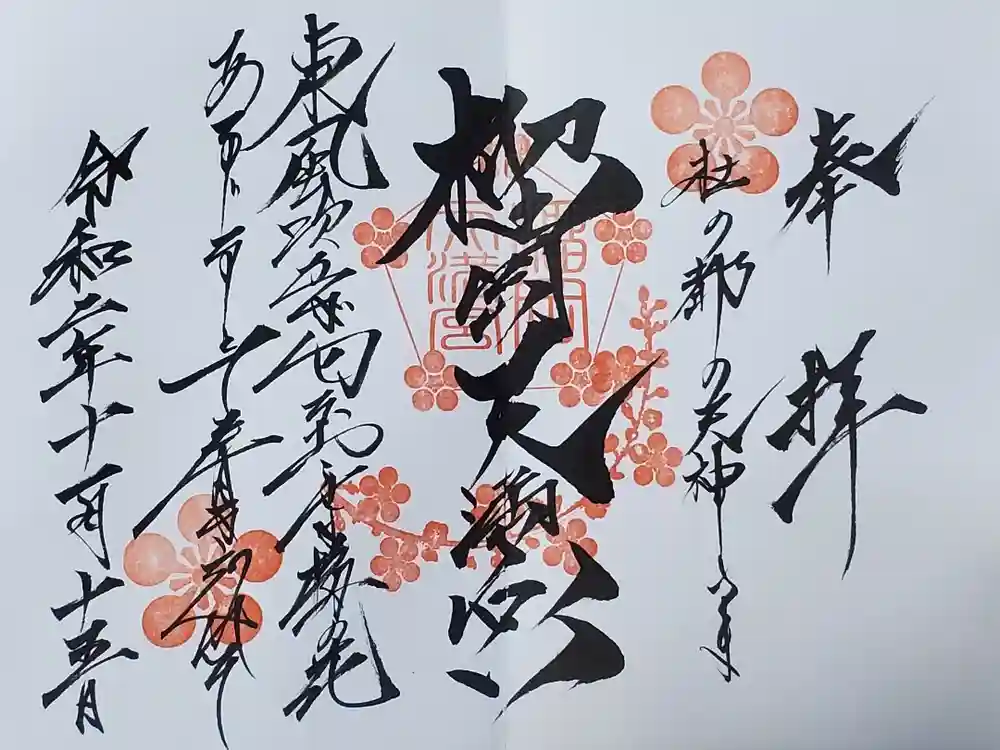 奉拝
杜の都の天神さま
榴岡天満宮
東風吹かば匂ひおこせよ梅の花
あるじなしとて春
令和二年十一月十五日
榴岡天満宮